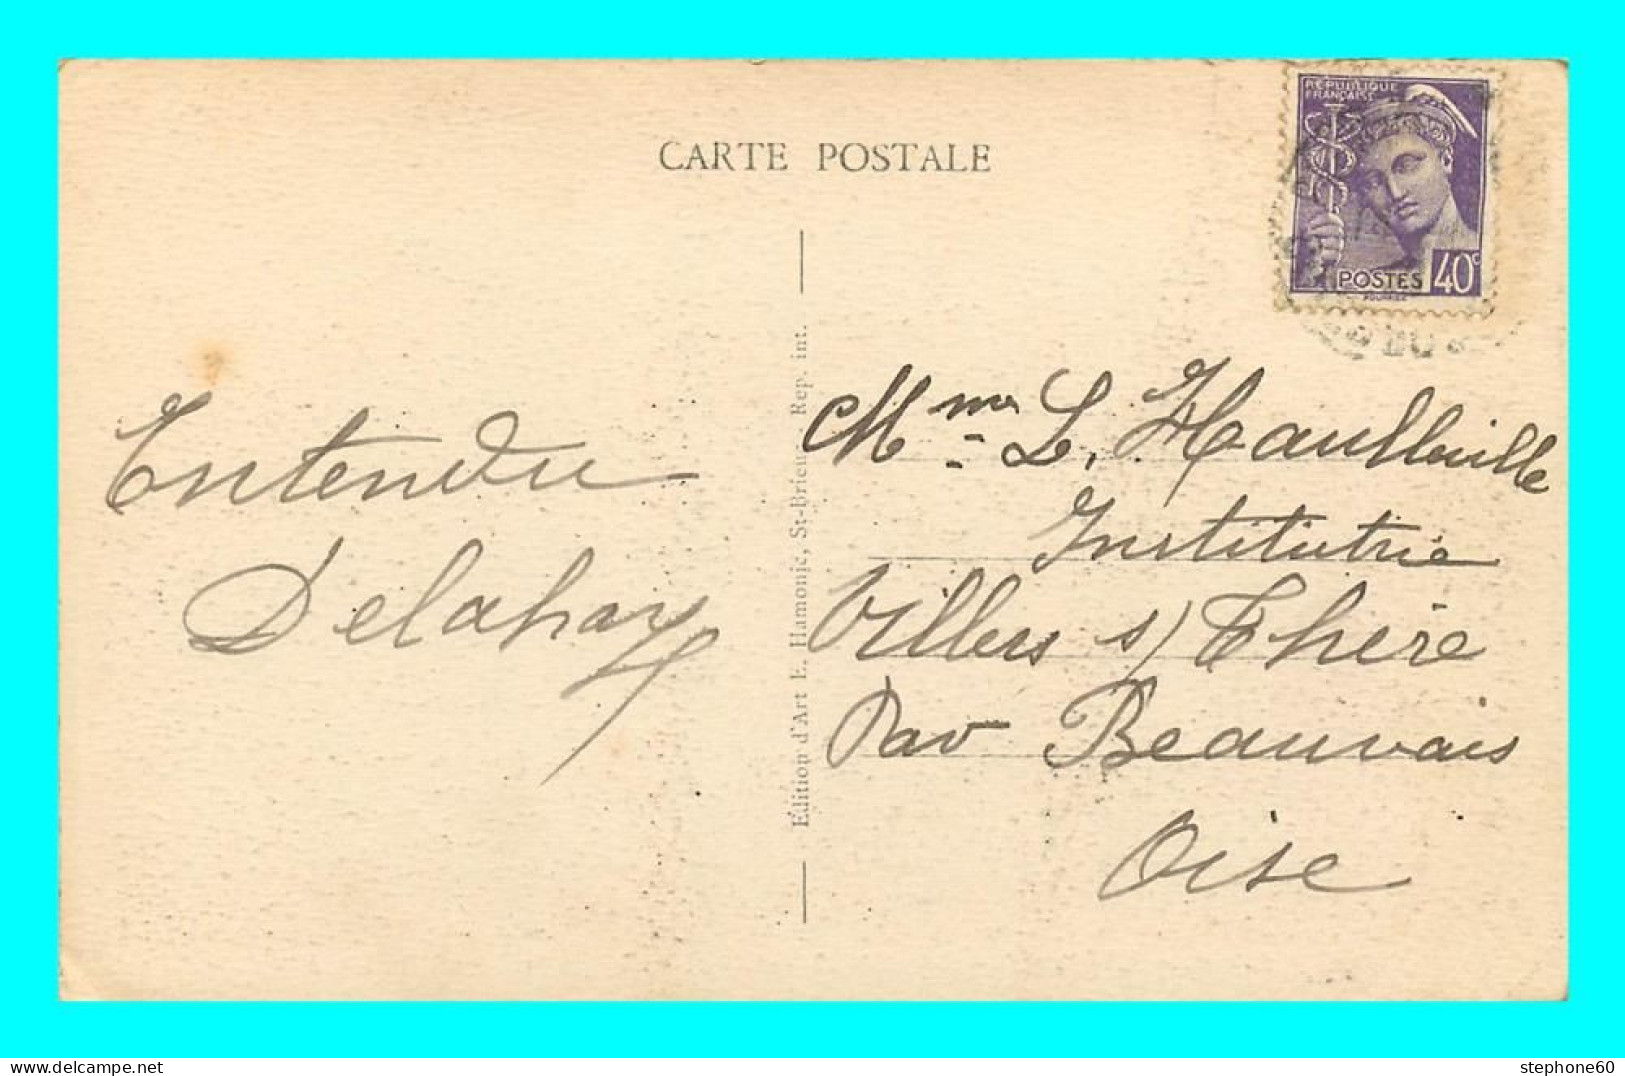 CARTE POSTALE
RÉPUBLIQUE
FRANÇAISE
POSTES 40c
Entendu
Delahaye
Édition d'Art E. Hamonic, St-Brieuc Rep. int.
Mme L. Haulleville
Institutrice
Villers s/ Thère
Par Beauvais
Oise
stephone60